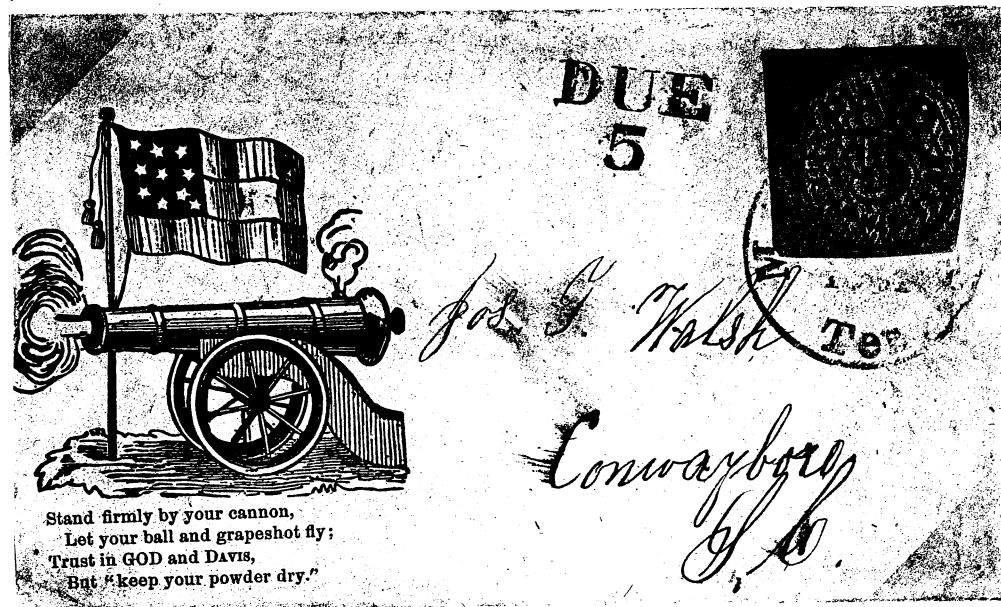 DUE
5
5
M
Ten
Jos. T. Walsh
Conwayboro
S, C.
Stand firmly by your cannon,
Let your ball and grapeshot fly;
Trust in GOD and DAVIS,
But "keep your powder dry."